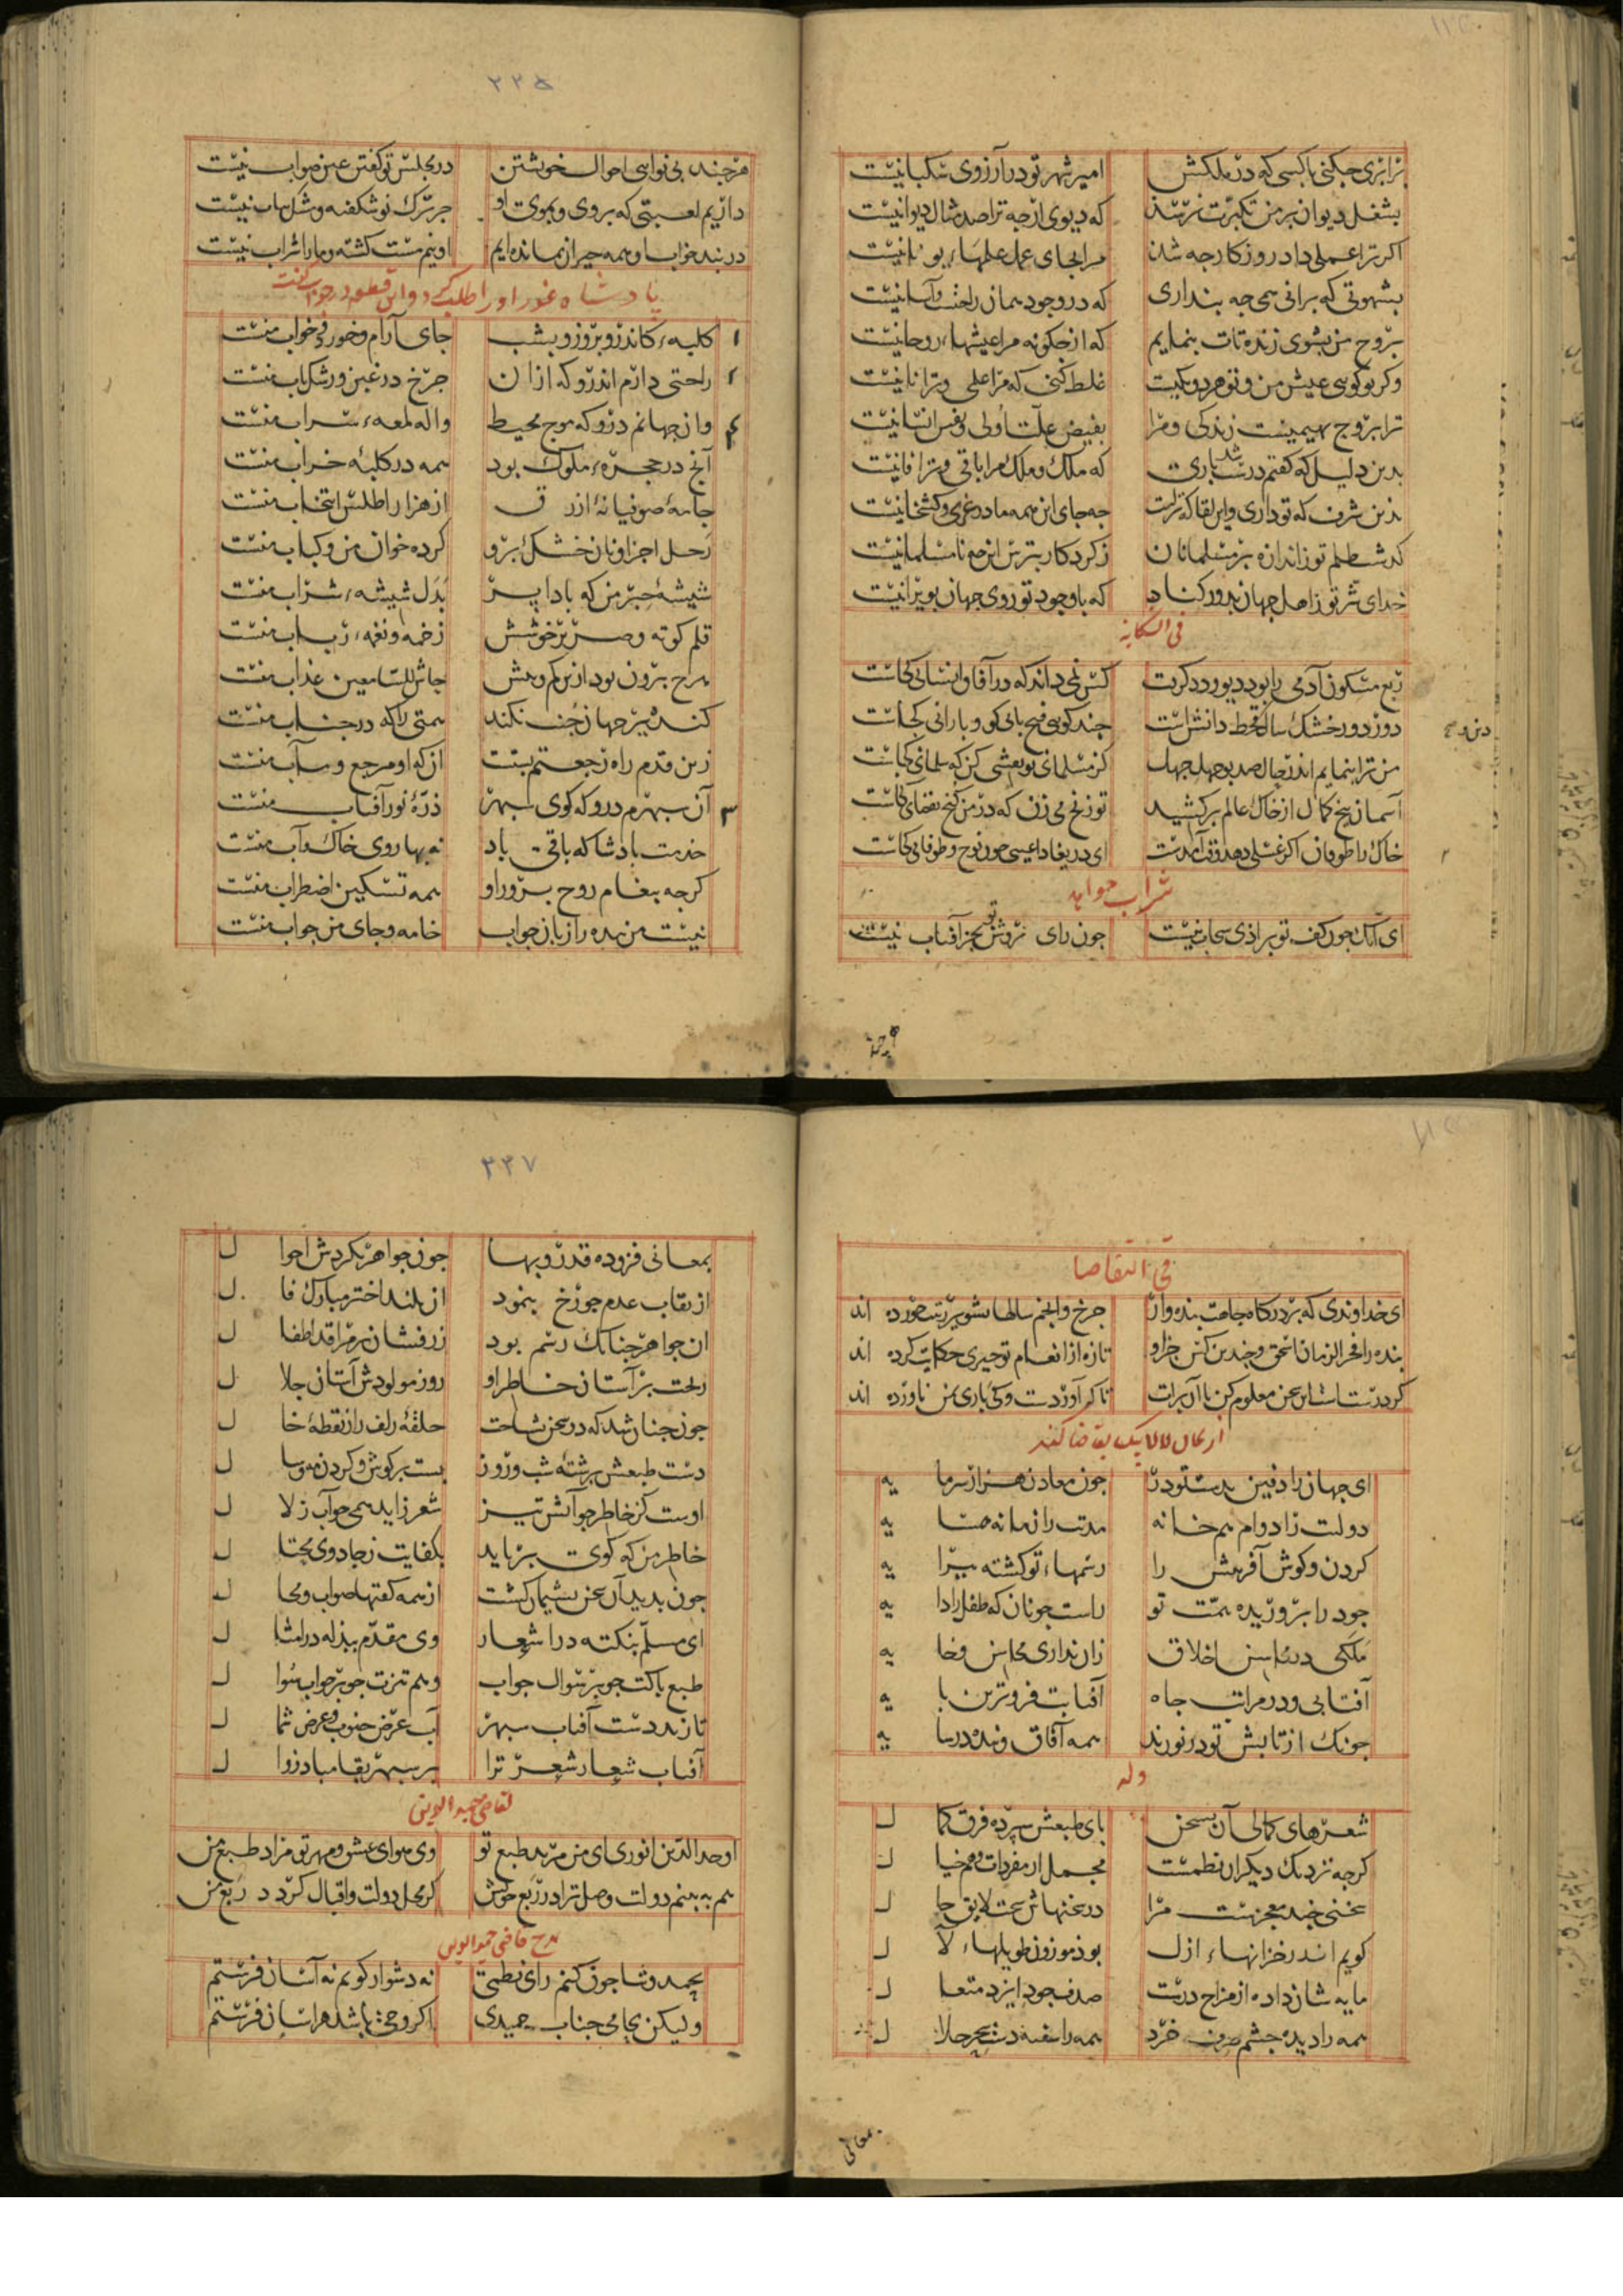 ترا بزی جکنی باکسی که در ملکش امیر شهر تو در آرزوی سکبانیست
بشغل دیوان بر من تکبرت نرسد که دیوی ارجه ترا صد مثال دیوانیست
اکر ترا عملی داد روزکار جه شد مرا بجای عمل علمهاء یونانیست
بشهوتی که برانی همی جه بنداری که در وجود همان راحت وآسانیست
بروح من بشوی زنده تات بنمایم که از جکونه مرا عیشهاء روحانیست
وکر بوکوی عیش من وتو هر دو یکیست غلط کنی که مرا عقلی و ترا نانیست
ترا بروح بهیمیست زندکی ومرا بفیض علت اولی ونفس انسانیست
بدین دلیل که کفتم درست شد باری که ملک وملک مرا باقی و ترا فانیست
بدین شرف که تو داری واین لقا که تراست جه جای این همه مادر غری وکشخانیست
کدشت ظلم تو ز اندازه بر مسلمانان ز کردکار بترس این جه نامسلمانیست
خدای شر تو ز اهل جهان بدور کناد که با وجود تو روی جهان بویرانیست
فی الشکایة
ربع مسکون آدمی را بود دیو و دد کرفت کس نمی داند که در آفاق انسانی کجاست
دور دور خشک سال قحط دانش است جند کوی فتح بابی کو و بارانی کجاست
من ترا بنمایم اندر حال صد بوجهل جهل کر مسلمانی تو تعیین کن که سلمانی کجاست
آسمان بیخ کمال از خاک عالم برکشید تو زنخ می زن که در من کنج نقصانی کجاست
خاک را طوفان اکر غسلی دهد وقت آمدست ای دریغا داعیی جون نوح وطوفانی کجاست
شراب خواهد
ای آنک جون کف تو براذی سحاب نیست جون رای روشن تو بجز آفتاب نیست
هرجند
۲۲۵
هرجند بی نوایی احوال خویشتن در مجلس تو کفتن عین صواب نیست
داریم لعبتی که بروی و بموی او جز برک نو شکفته ومشک ناب نیست
در بند خواب وهمه حیران بمانده ایم او نیم مست کشته ومارا شراب نیست
بادشاه غور اورا طلب کرد و این قطعه در جواب کفت
کلبهء کاندرو بروز و بشب جای آرام وخورد وخواب منست
راحتی دارم اندرو که ازان جرخ در غبن ورشک ناب منست
وان جهانم درو که موج محیط واله لمعهء سراب منست
آنج در حجرهء ملوک بود همه در کلبهٔ خراب منست
جامهٔ صوفیانهٔ ازرق از هزار اطلس انتخاب منست
رحل اجزا و نان خشک برو کرده خوان من وکباب منست
شیشهٔ حبر من که بادا پر بدل شیشهء شراب منست
قلم کوته وصریر خوشش زخمه ونغمهء رباب منست
هرج بیرون بود ازین کم وبیش حاش للسامعین عذاب منست
کنده بیر جهان جنب نکند همتی را که در جناب منست
زین قدم راه رجعتم بستست آن که او مرجع ومآب منست
آن سبهرم درو که کوی سبهر ذرهٔ نور آفتاب منست
خدمت بادشا که باقی باد نه بهاروی خاک وآب منست
کرجه بیغام روح برور او همه تسکین اضطراب منست
نیست من بنده را زبان جواب خامه وجای من جواب منست
فی التقاضا
ای خداوندی که بر درکاه جاهت بنده وار جرخ وانجم سالها
بنده را فخر الزمان اسحق وجندین کس جز او تازه از انعام تو جیزی حکایت کرده اند
کر درست است این سخن معلوم کن تا آن برات تا که آوردست وکی باری بمن ناورده اند
ای جهان را زمین بدستور در جون معادن هزار سرما یه
دولتت را دوام هم خانه مدتت را زمانه همسا یه
کردن وکوش آفرینش را رسمهاء تو کشته بیرا یه
جود را برورید همت تو راست جونان که طفل را دا یه
ملکی در محاسن اخلاق زان نداری محاسن و خا یه
آفتابی و در مراتب جاه آفتابت فروترین با یه
جونک از تابش تو در نورند همه آفاق وبنده در سا یه
وله
شعرهای کمالی آن بسخن بای طبعش سپرده فرق کما ل
کرجه نزدیک دیکران نظمست مجمل از مفردات وهم خیا ل
سخنی جند معجزست مرا در سخنهاش سخت لایق حا ل
کویم اندر خزانهاء ازل بوذ موزون طویلهاء لآ ل
مایه شان داده از مزاج درست صدف جود ایزد متعا ل
همه را دیده جشم صرف خرد همه را سفته دست سحر حلا ل
بمعانی
۲۲۷
بمعانی فزوده قدر و بها جون جواهر بکردش احوا ل
از نقاب عدم جو رخ بنمود آن بلند اختر مبارک فا ل
ان جواهر جنانک رسم بود زر فشان بر سر اقد اطفا ل
ریخت بر آستان خاطر او روز مولودش آستان جلا ل
جون جنان شد که در سخن بشناخت حلقهٔ زلف را ز نقطهٔ خا ل
دست طبعش برشتهٔ شب وروز بست بر کوش وکردن مه وسا ل
اوست کز خاطر جو آتش تیز شعر زاید همی جو آب زلا ل
خاطر من که کوی برباید بکفایت ز جادوی محتا ل
جون بدید آن سخن بشیمان کشت از همه کفتها صواب ومحا ل
ای مسلم بنکته در اشعار وی مقدم ببذله در امثا ل
طبع باکت جو بر سوال جواب وهم تیزت جو بر جواب سوا ل
تا زند دست آفتاب سبهر آب عرض جنوب وعرض شما ل
آفتاب شعار شعر ترا بر سبهر بقا مبادا زوا ل
لقاضی حمید الدین
اوحد الدین انوری ای من مرید طبع تو وی هوای عیش ومهر تو مراد طبع من
هم ببینم دولت وصل ترا در ربع خویش کر محل دولت واقبال کردد ربع من
مدح قاضی حمید الدین
بحمد وثنا جون کنم رای نظمی نه دشوار کویم نه آسان فرستم
ولیکن بحامی جناب حمیدی اکر وحی باشد هراسان فرستم